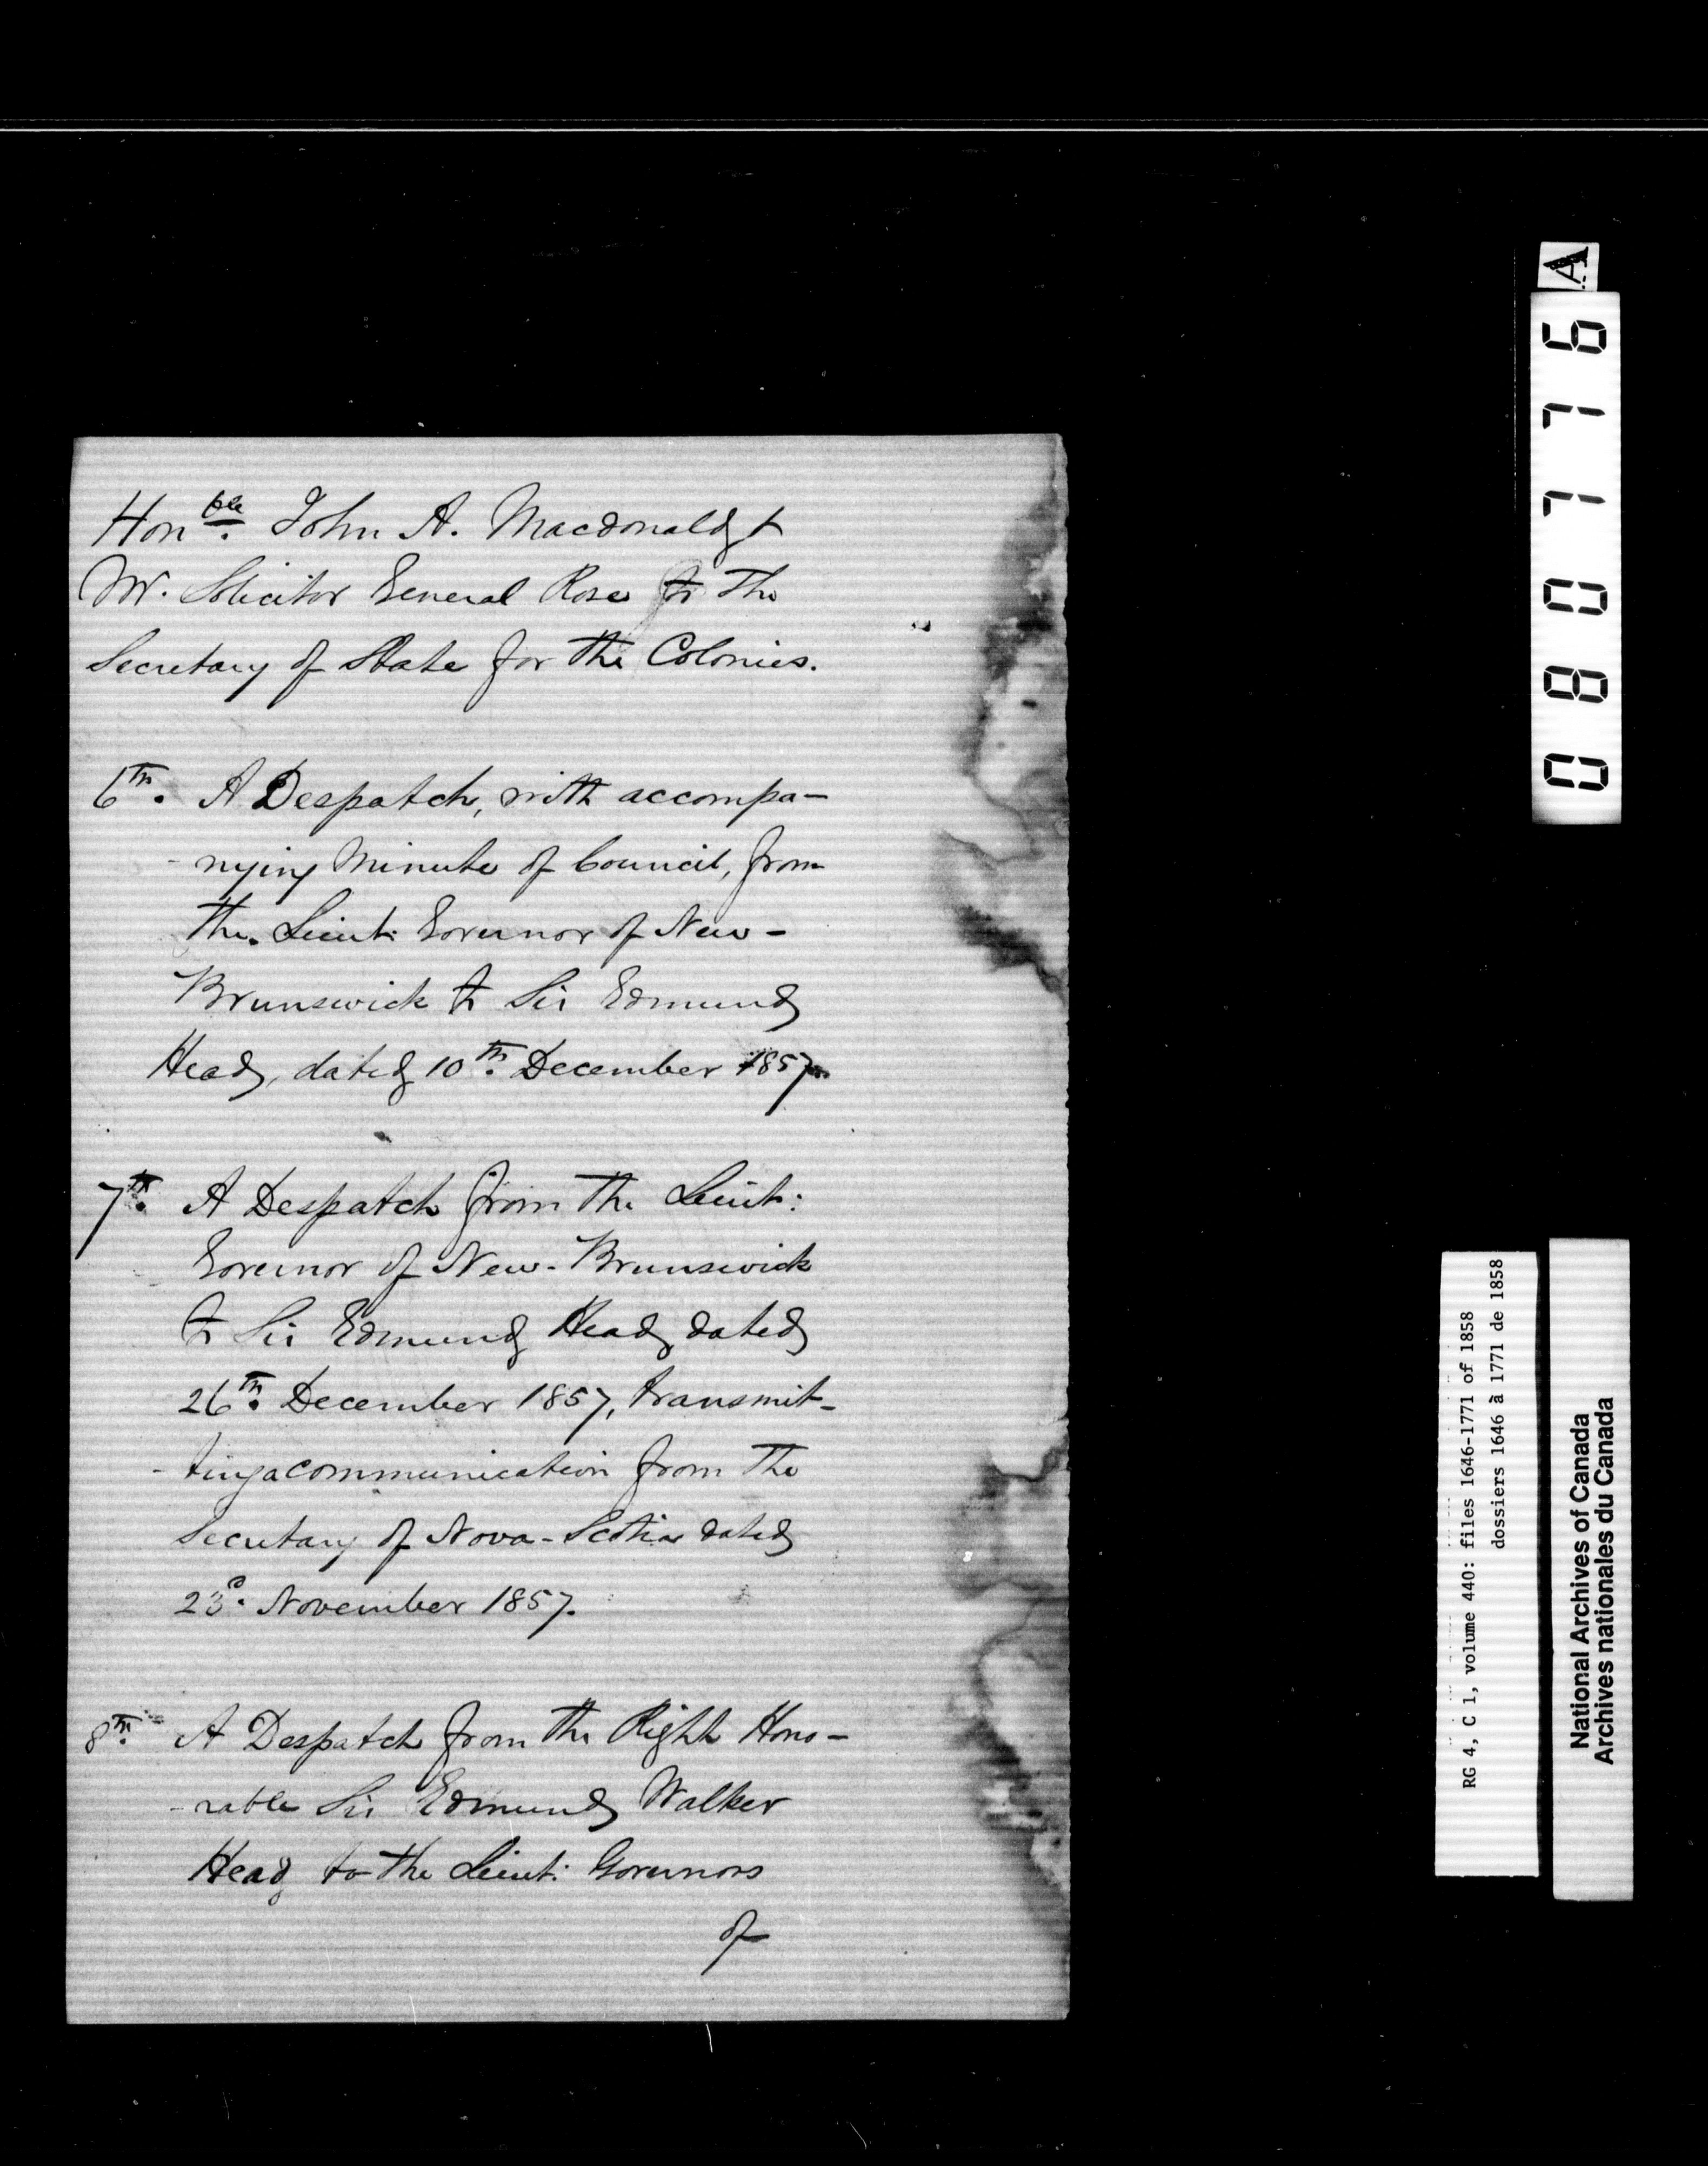 Honble. John A. Macdonald &
Mr. Solicitor General Rose to the
Secretary of State for the Colonies.
6th. A Despatch, with accompa-
- nying Minute of Council, from
the Lieut: Governor of New-
Brunswick to Sir Edmund
Head, dated 10th. December 1857.
7th. A Despatch from the Lieut:
Governor of New-Brunswick
to Sir Edmund Head, dated
26th. December 1857, transmit-
- ting a communication from the
Secretary of Nova-Scotia dated
23d. November 1857.
8th. A Despatch from the Right Hono-
- rable Sir Edmund Walker
Head to the Lieut: Governors
of
A
080776
RG 4, C 1, volume 440: files 1646-1771 of 1858
dossiers 1646 à 1771 de 1858
National Archives of Canada
Archives nationales du Canada